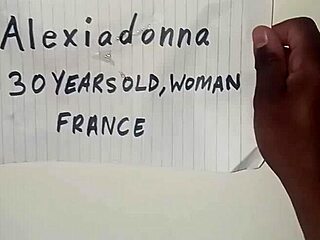 Alexiadonna
30 YEARS OLD, WOMAN
FRANCE